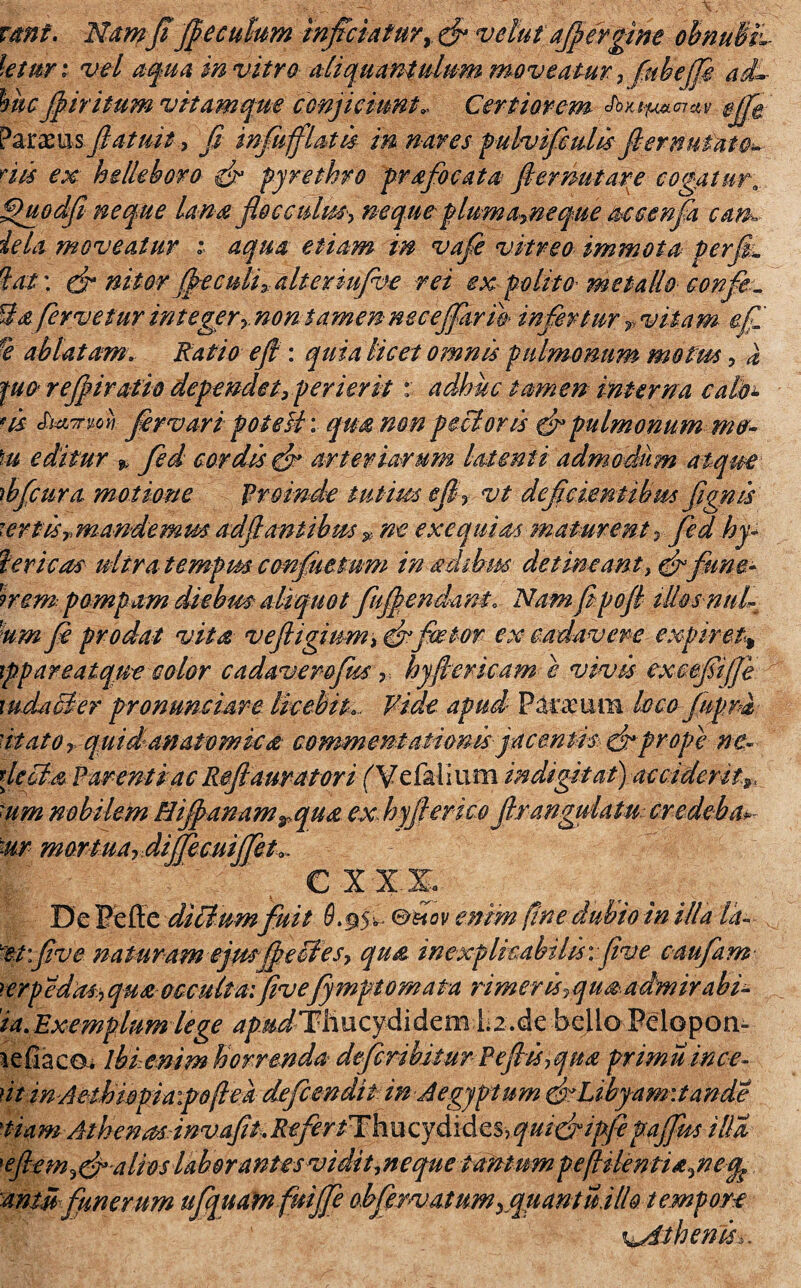 rant. Nam ſi ſpeculum inficiatur, & velut aſpergine obnubi-
letur: vel aqua in vitro aliquantulum moveatur, ſubeſſe ad-
huc ſpiritum vitamque conjiciunt. Certiorem δοκιμασίαν eſſe
Paræus ſtatuit, ſi inſufflatis in nares pulviſculis ſternutato-
riis ex helleboro & pyrethro præfocata ſternutare cogatur.
Quodſi neque lanæ flocculus, neque pluma, neque accenſa can-
dela moveatur : aqua etiam in vaſe vitreo immota perſi-
ſtat: & nitor ſpeculi, alteriuſve rei ex polito metallo confe-
ctæ ſervetur integer, non tamen neceſſariò infertur, vitam eſ-
ſe ablatam. Ratio eſt : quia licet omnis pulmonum motus, à
quo reſpiratio dependet, perierit : adhuc tamen interna calo-
ris διαπνοὴ ſervari poteſt: quæ non pectoris & pulmonum mo-
tu editur, ſed cordis & arteriarum latenti admodùm atque
obſcura motione Proinde tutius eſt, vt deficientibus ſignis
certis, mandemus adſtantibus, ne exequias maturent, ſed hy-
ſtericas ultra tempus conſuetum in ædibus detineant, & fune-
brem pompam diebus aliquot ſuſpendant. Nam ſi poſt illos nul-
lum ſe prodat vitæ veſtigium, & fœtor ex cadavere expiret,
appareatque color cadaveroſus, hyſtericam è vivis exceſſiſſe
audacter pronunciare licebit. Vide apud Paræum loco ſuprà
citato, quid anatomicæ commentationis jacentis & propè ne-
glectæ Parenti ac Reſtauratori (Veſalium indigitat) acciderit,
cum nobilem Hiſpanam, quæ ex hyſterico ſtrangulatu credeba-
tur mortua, diſſecuiſſet.
C X X X.
De Peſte dictum fuit θ. 95. Θεῖον enim ſine dubio in illa la-
tet: ſive naturam ejus ſpectes, quæ inexplicabilis: ſive cauſam
perpēdas, quæ occulta: ſive ſymptomata rimeris, quæ admirabi-
lia. Exemplum lege apud Thucydidem l.2. de bello Pelopon-
neſiaco. Ibi enim horrenda deſcribitur Peſtis, quæ primū ince-
pit in Aethiopia: poſteà deſcendit in Aegyptum & Libyam: tandē
etiam Athenas invaſit. Refert Thucydides, qui & ipſe paſſus illā
peſtem, & alios laborantes vidit, neque tantum peſtilentiæ, neq́
tantū funerum uſquam fuiſſe obſervatum, quantū illo tempore
Athenis.